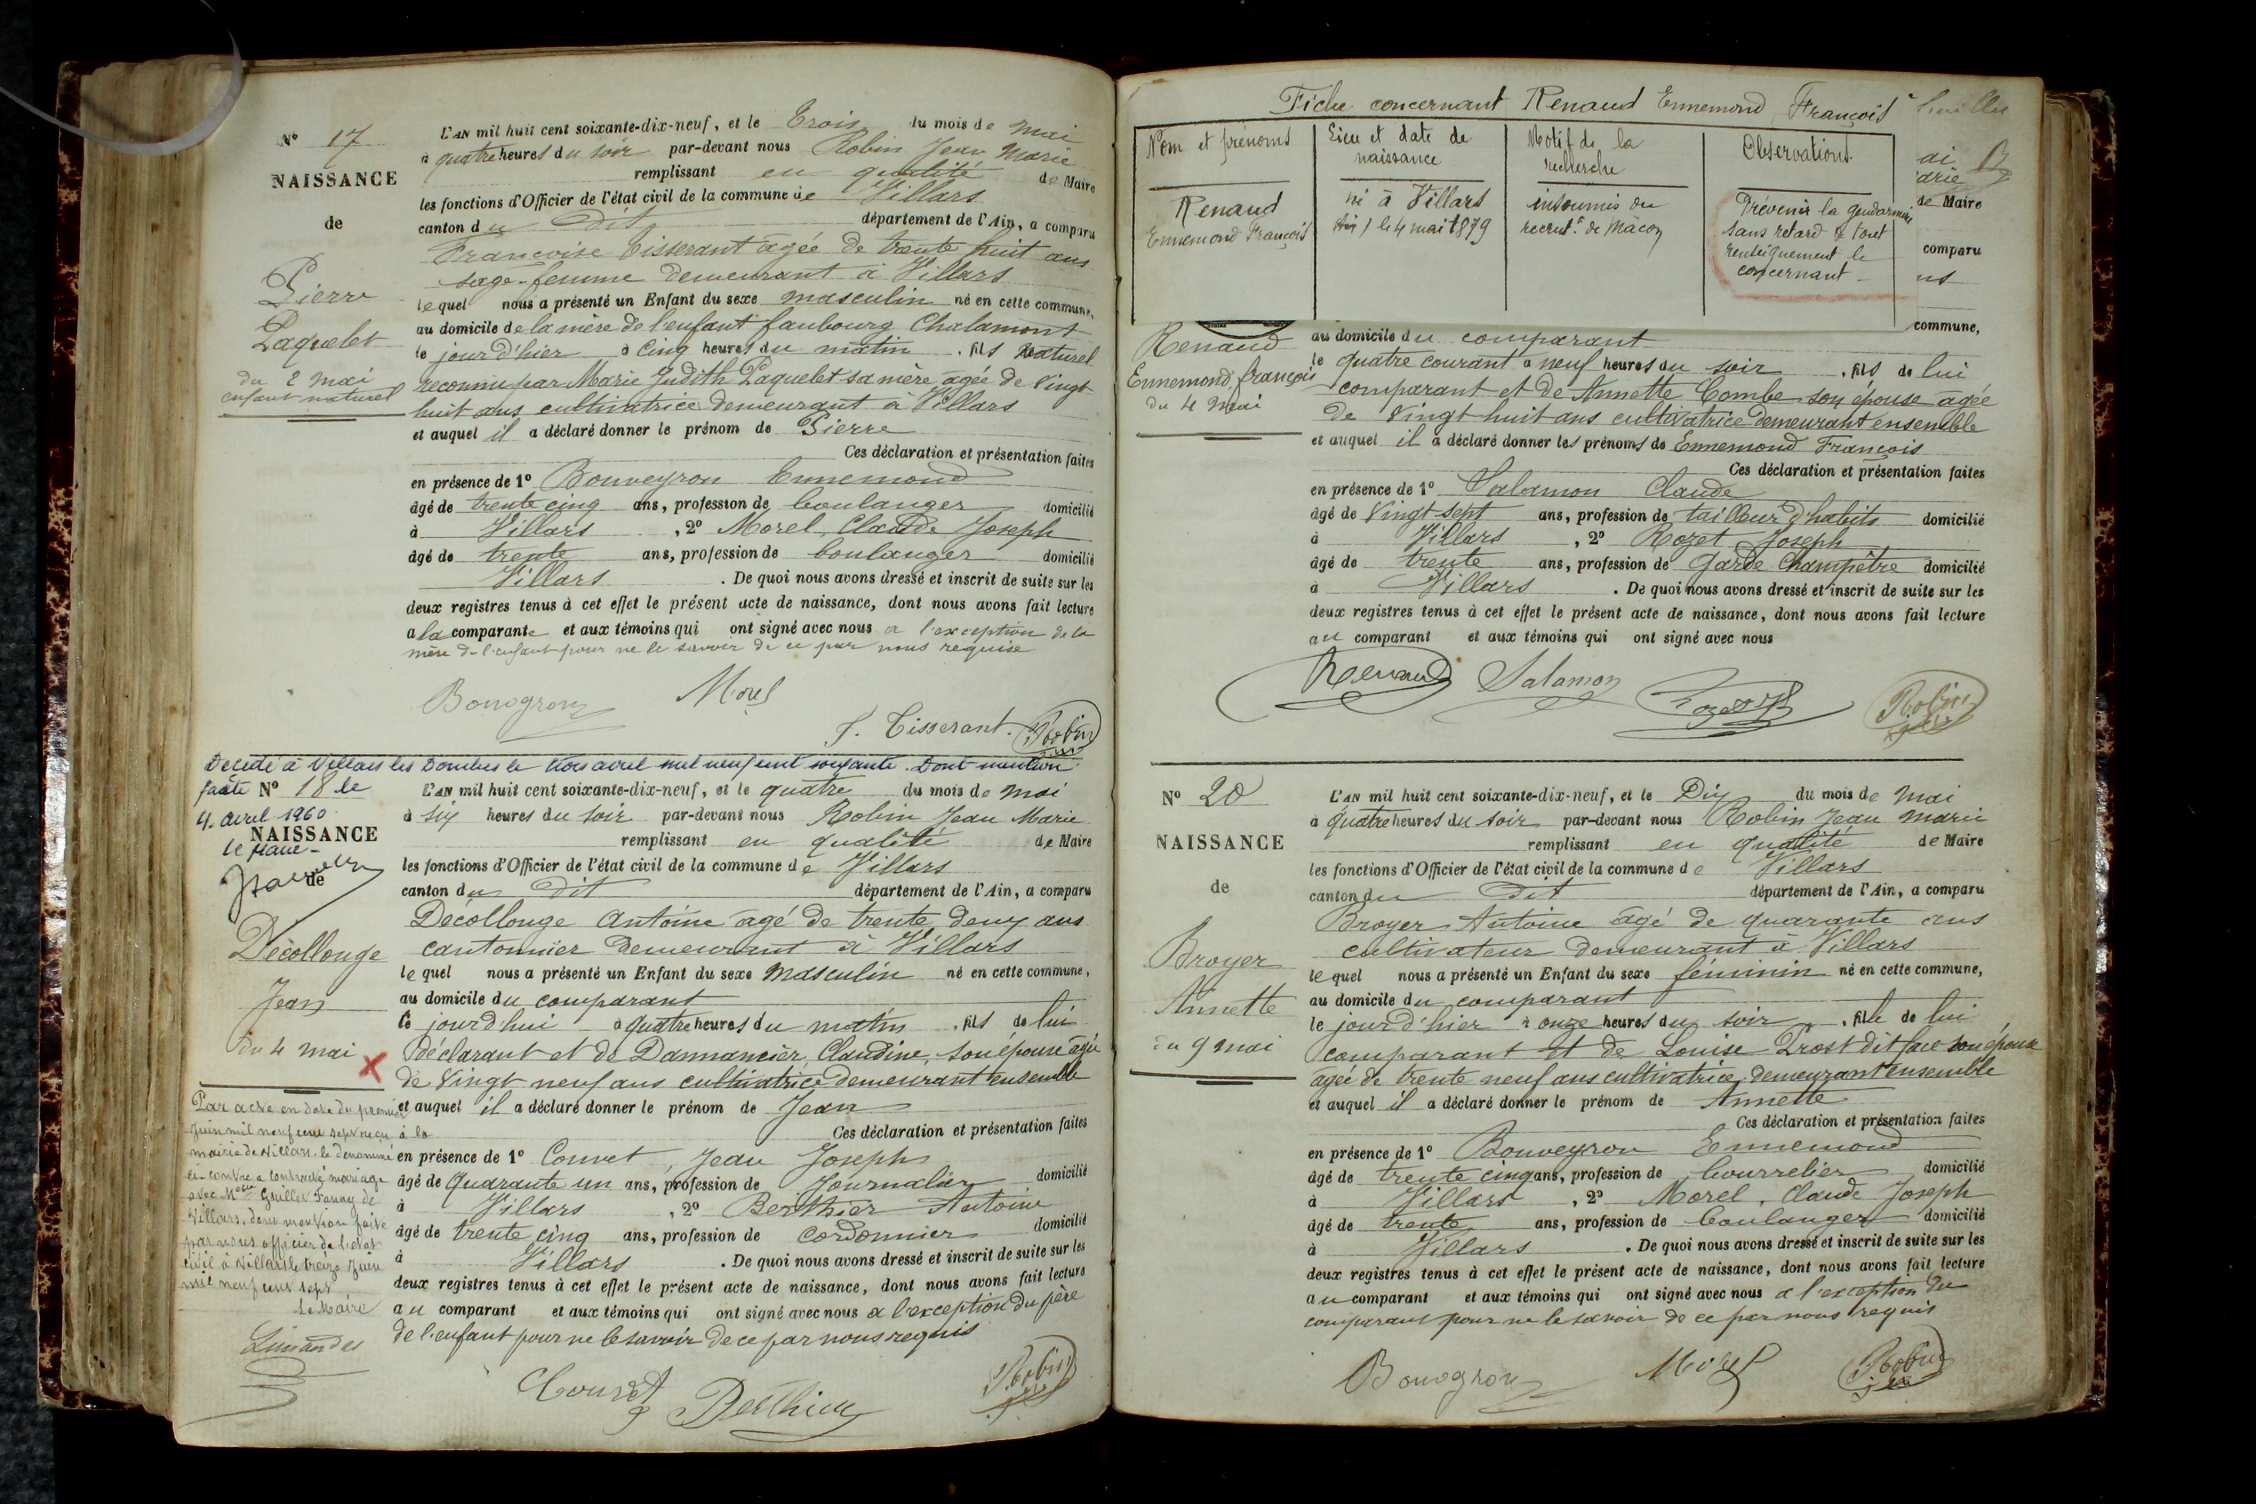 N° 17
NAISSANCE
de
Pierre
Paquelet
du 2 mai
enfant naturel
L'AN mil huit cent soixante-dix-neuf, et le Trois du mois de mai
à quatre heures du soir par-devant nous Robin Jean Marie
remplissant en qualité de Maire
les fonctions d'Officier de l'état civil de la commune de Villars
canton du dit département de l'Ain, a comparu
Francoise Tisserant âgée de trente huit ans
sage-femme demeurant à Villars
lequel nous a présenté un Enfant du sexe masculin né en cette commune,
au domicile de la mère de l'enfant faubourg Chalamont
le jour d'hier à cinq heures du matin . fils naturel
reconnu par Marie Judith Paquelet sa mère âgée de vingt
huit ans cultivatrice demeurant à Villars
et auquel il a déclaré donner le prénom de Pierre
Ces déclaration et présentation faites
en présence de 1° Bouveyron Ennemond
âgé de trente cinq ans, profession de boulanger domicilié
à Villars , 2° Morel, Claude Joseph
âgé de trente ans, profession de boulanger domicilié
Villars . De quoi nous avons dressé et inscrit de suite sur les
deux registres tenus à cet effet le présent acte de naissance, dont nous avons fait lecture
a la comparante et aux témoins qui ont signé avec nous a l'exception de la
mère de l'enfant pour ne le savoir de ce par nous requise
Bouveyron Morel
F. Tisserant. Robin
Décédé à Villars les Dombes le trois avril mil neuf cent soixante. Dont mention
faite N° 18 le
4 avril 1960
NAISSANCE
Le Maire
de
Décollonge
Jean
du 4 mai
Par acte en date du premier
Juin mil neuf cent sept reçu à la
mairie de Villars, le dénommé
ci-contre a contracté mariage
avec Melle Guillet Fanny de
Villars, dont mention faite
par nous officier de l'état
civil à Villars le treize Juin
mil neuf cent sept
Le Maire
L'AN mil huit cent soixante-dix-neuf, et le quatre du mois de mai
à six heures du soir par-devant nous Robin Jean Marie
remplissant en qualité de Maire
les fonctions d'Officier de l'état civil de la commune de Villars
canton du dit département de l'Ain, a comparu
Décollonge Antoine âgé de trente deux ans
cantonnier demeurant à Villars
lequel nous a présenté un Enfant du sexe masculin né en cette commune,
au domicile du comparant
le jourd'hui à quatre heures du matin . fils de lui
déclarant et de Dannancier Claudine, son épouse âgée
de vingt neuf ans cultivatrice demeurant ensemble
et auquel il a déclaré donner le prénom de Jean
Ces déclaration et présentation faites
en présence de 1° Couvet, Jean Joseph
âgé de quarante un ans, profession de Journalier domicilié
à Villars , 2° Berthier Antoine
âgé de trente cinq ans, profession de cordonnier domicilié
à Villars . De quoi nous avons dressé et inscrit de suite sur les
deux registres tenus à cet effet le présent acte de naissance, dont nous avons fait lecture
au comparant et aux témoins qui ont signé avec nous a l'exception du père
de l'enfant pour ne le savoir de ce par nous requis
Couvet Berthier Robin
Fiche concernant Renaud Ennemond François
Nom et prénoms
Lieu et date de
naissance
Motif de la
recherche
Observations
Renaud
Ennemond François
né à Villars
Ain / le 4 mai 1879
insoumis du
recrut.t de Mâcon
Prévenir la gendarmerie
sans retard de tout
renseignement le
concernant
de Maire
comparu
ns
commune,
Renaud
Ennemond, françois
du 4 mai
au domicile du comparant
le quatre courant à neuf heures du soir . fils de lui
comparant et de Annette Combe son épouse âgée
de vingt huit ans cultivatrice demeurant ensemble
et auquel il a déclaré donner les prénoms de Ennemond François
Ces déclaration et présentation faites
en présence de 1° Salamon Claude
âgé de vingt sept ans, profession de tailleur d'habits domicilié
à Villars , 2° Rozet Joseph
âgé de trente ans, profession de garde champêtre domicilié
à Villars . De quoi nous avons dressé et inscrit de suite sur les
deux registres tenus à cet effet le présent acte de naissance, dont nous avons fait lecture
au comparant et aux témoins qui ont signé avec nous
Renaud Salamon Rozet Robin
N° 20
NAISSANCE
de
Broyer
Annette
du 9 mai
L'AN mil huit cent soixante-dix-neuf, et le Dix du mois de mai
à quatre heures du soir par-devant nous Robin Jean Marie
remplissant en qualité de Maire
les fonctions d'Officier de l'état civil de la commune de Villars
canton du dit département de l'Ain, a comparu
Broyer Antoine âgé de quarante ans
cultivateur demeurant à Villars
lequel nous a présenté un Enfant du sexe féminin né en cette commune,
au domicile du comparant
le jour d'hier à onze heures du soir . fille de lui
comparant et de Louise Prost dit son épouse
âgée de trente neuf ans cultivatrice demeurant ensemble
et auquel il a déclaré donner le prénom de Annette
Ces déclaration et présentation faites
en présence de 1° Bouveyron Ennemond
âgé de trente cinq ans, profession de bourrelier domicilié
à Villars , 2° Morel, Claude Joseph
âgé de trente ans, profession de boulanger domicilié
à Villars . De quoi nous avons dressé et inscrit de suite sur les
deux registres tenus à cet effet le présent acte de naissance, dont nous avons fait lecture
au comparant et aux témoins qui ont signé avec nous a l'exception du
comparant pour ne le savoir de ce par nous requis
Bouveyron Morel Robin